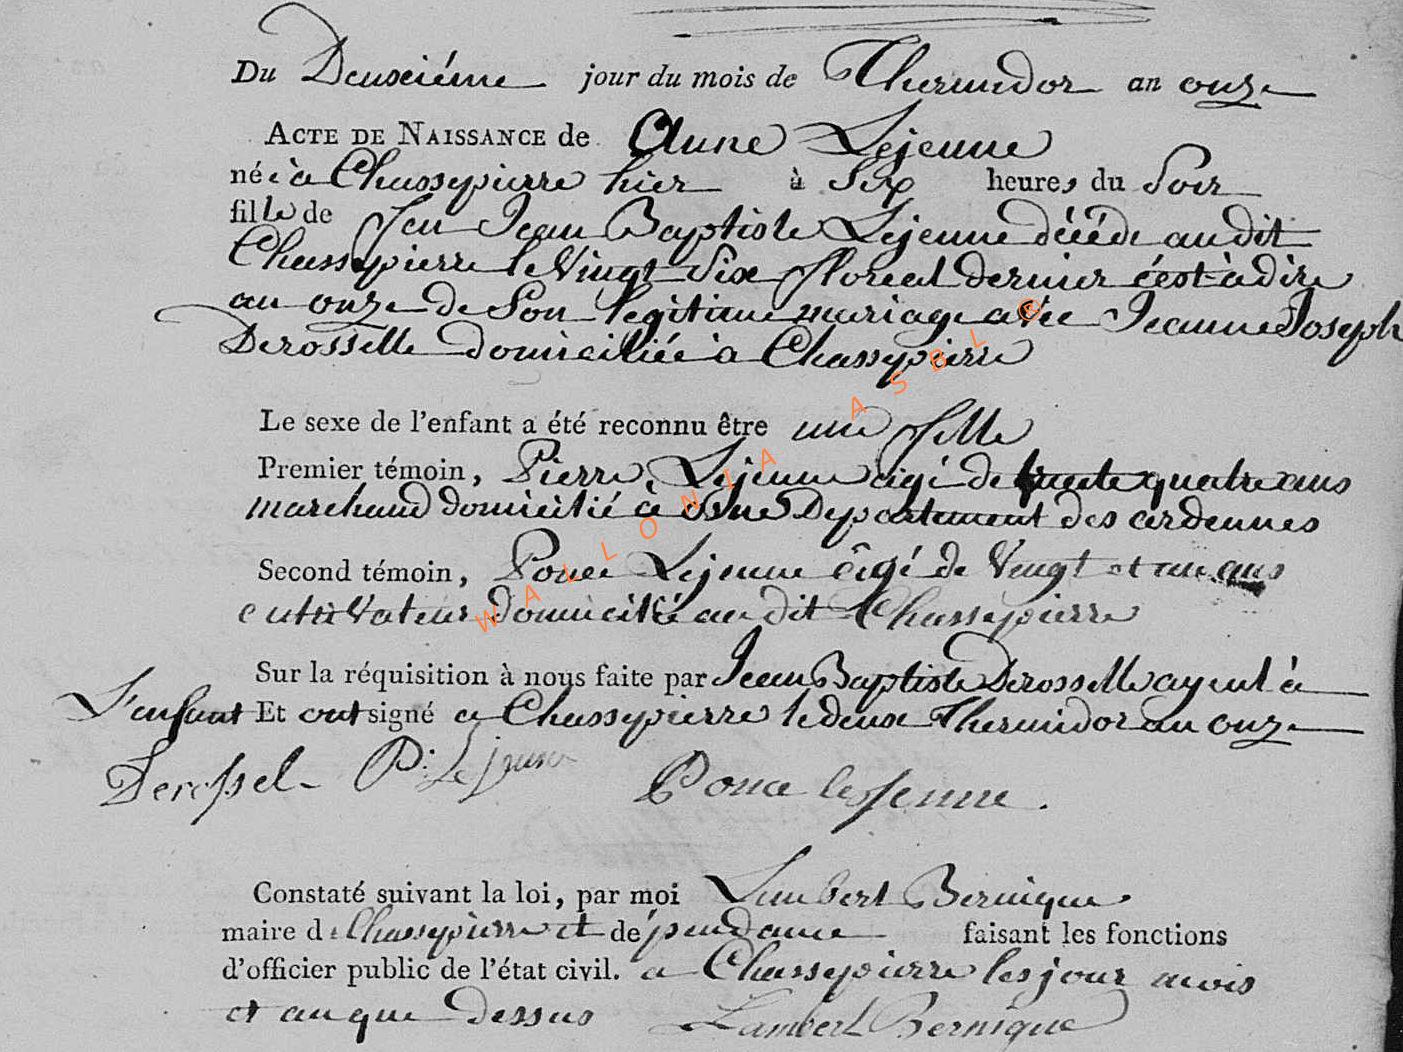 Du Deuxciéme jour du mois de Thermidor an onze
ACTE DE NAISSANCE de Anne Lejeune
née à Chassepierre hier à Six heures du Soir
fille de feu Jean Baptiste Lejeune décédé audit
Chassepierre le Vingt Six floreal dernier c'est à dire
an onze de Son legitime mariage avec Jeanne Joseph
Derosselle domiciliée à Chassepierre
Le sexe de l'enfant a été reconnu être une fille
Premier témoin, Pierre Lejeune agé de trente quatre ans
marchand domicilié à Departement des ardennes
Second témoin, Ponce Lejeune âgé de Vingt et un ans
cultivateur domicilié au dit Chassepierre
Sur la réquisition à nous faite par Jean Baptiste Derosselle ayeul à
L'enfant Et ont signé a Chassepierre le deux Thermidor an onze
Derossel P: Lejeune Ponce lejeune.
Constaté suivant la loi, par moi Lambert Bernique
maire de Chassepierre et dépendance faisant les fonctions
d'officier public de l'état civil. a Chassepierre les jour mois
et an que dessus Lambert Bernique
WALLONIA ASBL ©